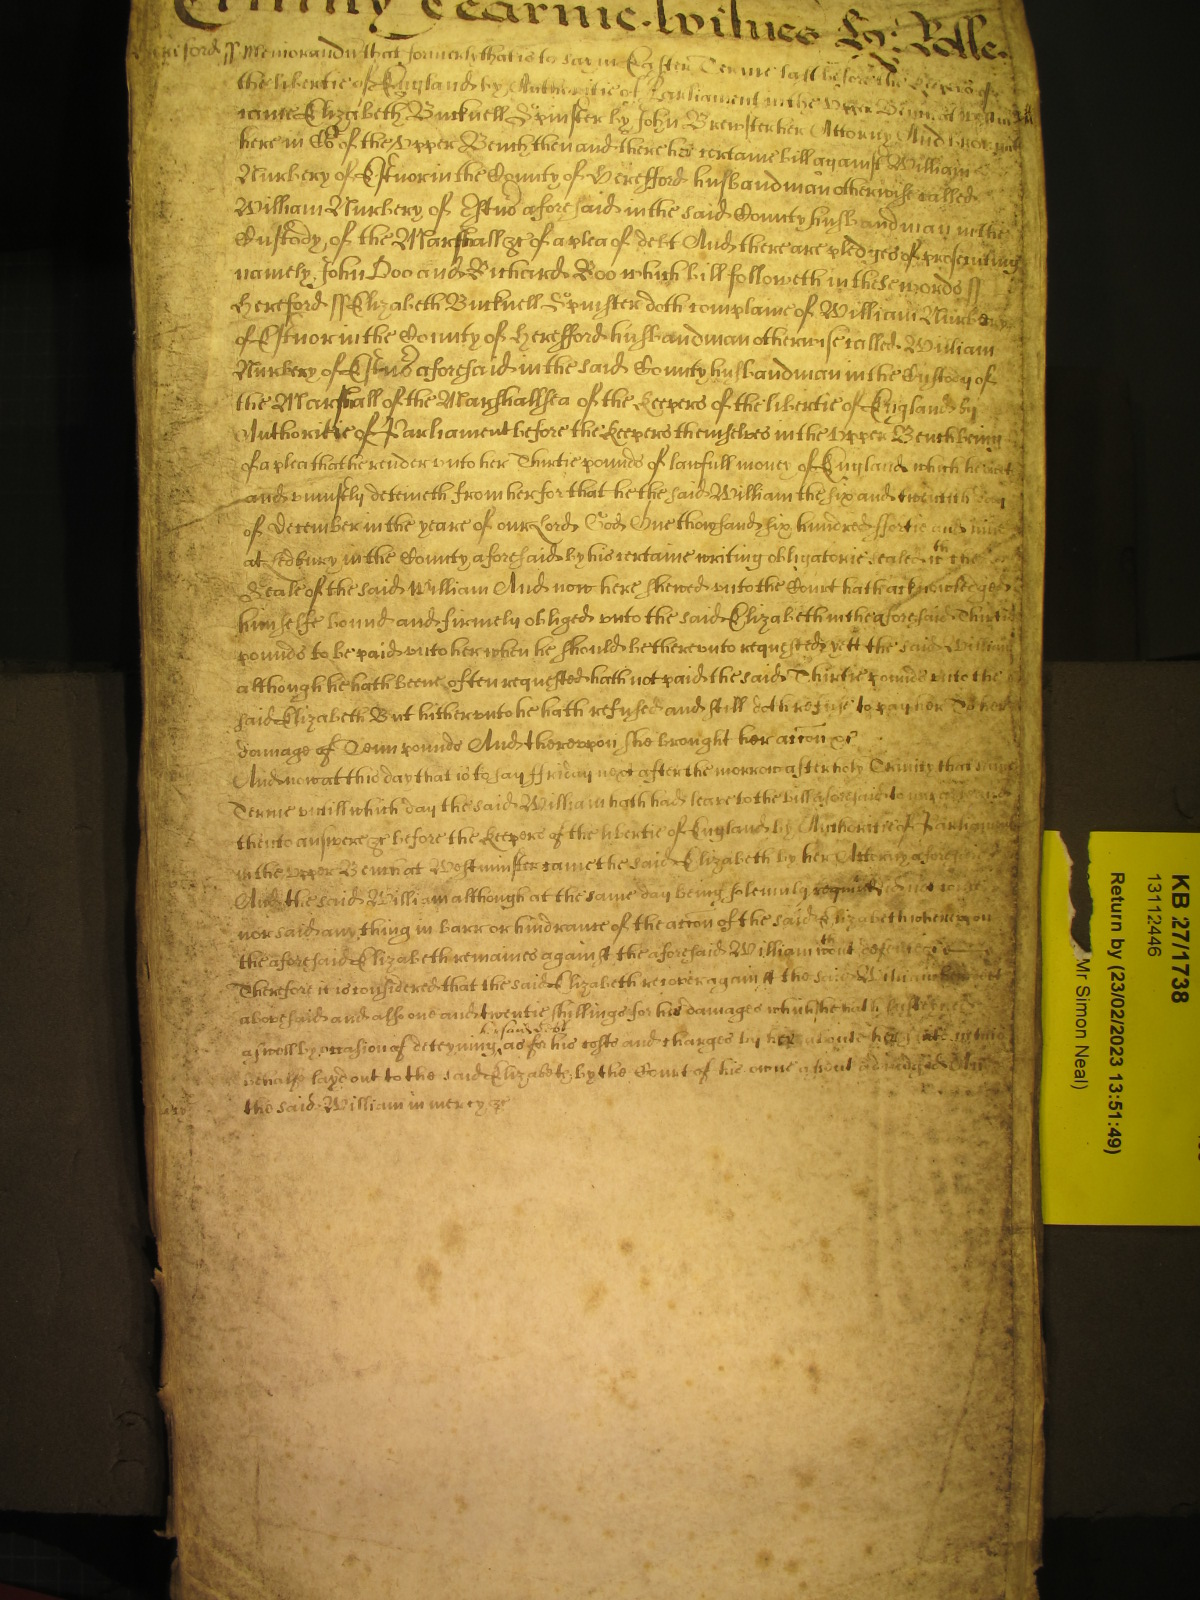 Trinity Tearme. Wittnes Hy: Rolle.
Hereford ss Memorandu that formerly that is to say in Easter Terme last before the Keepers of
the libertie of England by Authoritie of Parliament in the Upper Bench at
came Elizabeth Bucknell Spinster by John Brewster her Attorny And brought
here in Co of the Upper Bench then and there her certaine bill against William
Nurbery of Estnor in the County of Herefford husbandman otherwise called
William Nurbery of Estno aforesaid in the said County husbandman in the
Custody of the Marshall &c of a plea of debt And there are pledges of prosecuting
namely John Doo and Richard Roo which bill followeth in these words ss
Hereford ss Elizabeth Bucknell Spinster doth complaine of William Nurbery
of Estnor in the County of Herefford husbandman otherwise called William
Nurbery of Estno aforesaid in the said County husbandman in the Custody of
the Marshall of the Marshallsea of the Keepers of the libertie of England by
Authoritie of Parliament before the Keepers themselves in the Upper Bench being
of a plea that he render unto her Thirtie pounds of lawfull money of England which he
and uniustly deteineth from her for that he the said William the six and twentith day
of December in the yeare of our Lord God One thowsand six hundred ffortie and nine
at Ledbury in the County aforesaid by his certaine writing obligatorie sealed wth the
Seale of the said William And now here shewed unto the Court hath acknowledged
himselfe bound and firmely obliged unto the said Elizabeth in the aforesaid Thirtie
pounds to be paid unto her when he should be thereunto requested yett the said William
although he hath beene often requested hath not paid the said Thirtie pounds unto the
said Elizabeth But hitherunto he hath refused and still doth refuse to pay her To her
damage of Tenn pounds And thereupon she brought her accon &c
And now at this day that is to say ffriday next after the morrow after holy Trinity that same
Terme untill which day the said William hath had leave to the bill aforesaid to
then to answere &c before the Keepers of the libertie of England by Authoritie of Parliament
in the Upper Bench at Westminster came the said Elizabeth by her Attorny aforesaid
And the said William although at the same day being solemnly required came not
nor said any thing in barr or hindrance of the accon of the said Elizabeth whereupon
the aforesaid Elizabeth remaines against the aforesaid William wthout defence
Therefore it is considered that the said Elizabeth recover against the said William
abovesaid and also one and twentie shillings for her damages which she hath susteyned
aswell by occasion of deteyning as for his costs and charges by her about her suite in this
behalf layd out to the said Elizabeth by the Court of
the said William in mercy &c
KB 27/1738
13112446
Return by (23/02/2023 13:51:49)
Mr Simon Neal)